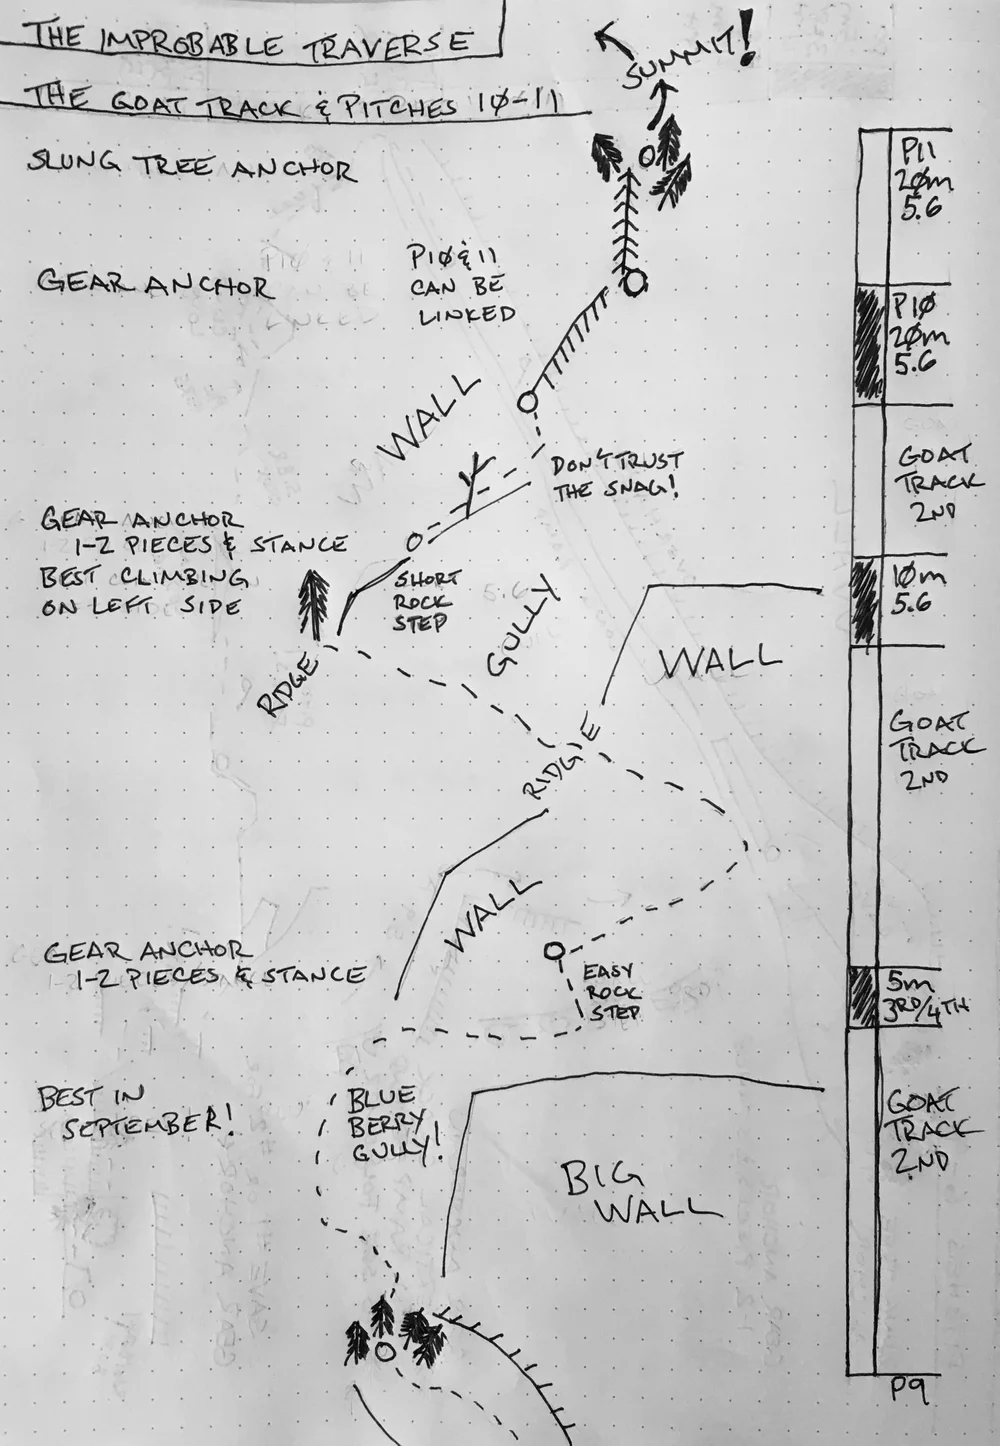 THE IMPROBABLE TRAVERSE
THE GOAT TRACK & PITCHES 10-11
SUMMIT!
SLUNG TREE ANCHOR
GEAR ANCHOR
P10 & 11
CAN BE
LINKED
WALL
DON'T TRUST
THE SNAG!
GEAR ANCHOR
1-2 PIECES & STANCE
BEST CLIMBING
ON LEFT SIDE
SHORT
ROCK
STEP
GULLY
RIDGE
WALL
RIDGE
WALL
GEAR ANCHOR
1-2 PIECES & STANCE
EASY
ROCK
STEP
BEST IN
SEPTEMBER!
BLUE
BERRY
GULLY!
BIG
WALL
P11
20m
5.6
P10
20m
5.6
GOAT
TRACK
2ND
10m
5.6
GOAT
TRACK
2ND
5m
3RD/4TH
GOAT
TRACK
2ND
P9